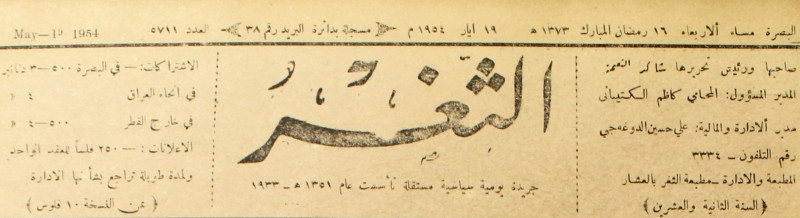 البصرة مساء الاربعاء ١٦ رمضان المبارك ١٣٧٣ هـ ١٩ ايار ١٩٥٤ م مسجلة بدائرة البريد رقم ٣٨ العدد ٥٧١١ May—19 1954
صاحبها ورئيس تحريرها شاكر النعمة
المدير المسؤول: المحامي كاظم الكتيباني
مدير الادارة والمالية: علي حسين الدوغه جي
رقم التلفون ـ ٣٣٣٤
المطبعة والادارة ـ مطبعة الثغر بالعشار
﴿ السنة الثانية والعشرين ﴾
الثغر
جريدة يومية سياسية مستقلة تأسست عام ١٣٥١ هـ ـ ١٩٣٣
الاشتراكات: ـ في البصرة ٥٠٠ـ٣ دنانير
في أنحاء العراق ٤ »
في خارج القطر ٥٠٠ـ٤ »
الاعلانات: ـ ٢٥٠ فلساً للعقد الواحد
ولمدة طويلة تراجع بشأنها الادارة
﴿ ثمن النسخة ١٠ فلوس ﴾